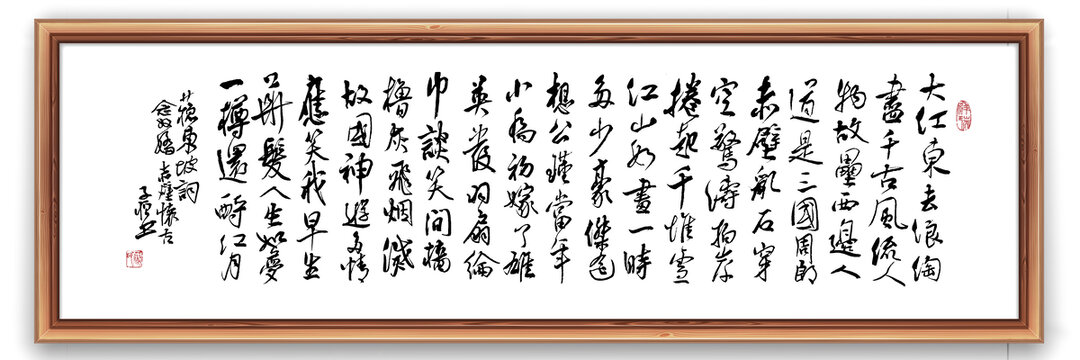 大江東去浪淘
盡千古風流人
物故壘西邊人
道是三國周郎
赤壁亂石穿
空驚濤拍岸
捲起千堆雪
江山如畫一時
多少豪傑遙
想公瑾當年
小喬初嫁了雄
英發羽扇綸
巾談笑間檣
櫓灰飛烟滅
故國神遊多情
應笑我早生
華髮人生如夢
一樽還酹江月
蘇東坡詞
念奴嬌赤壁懷古